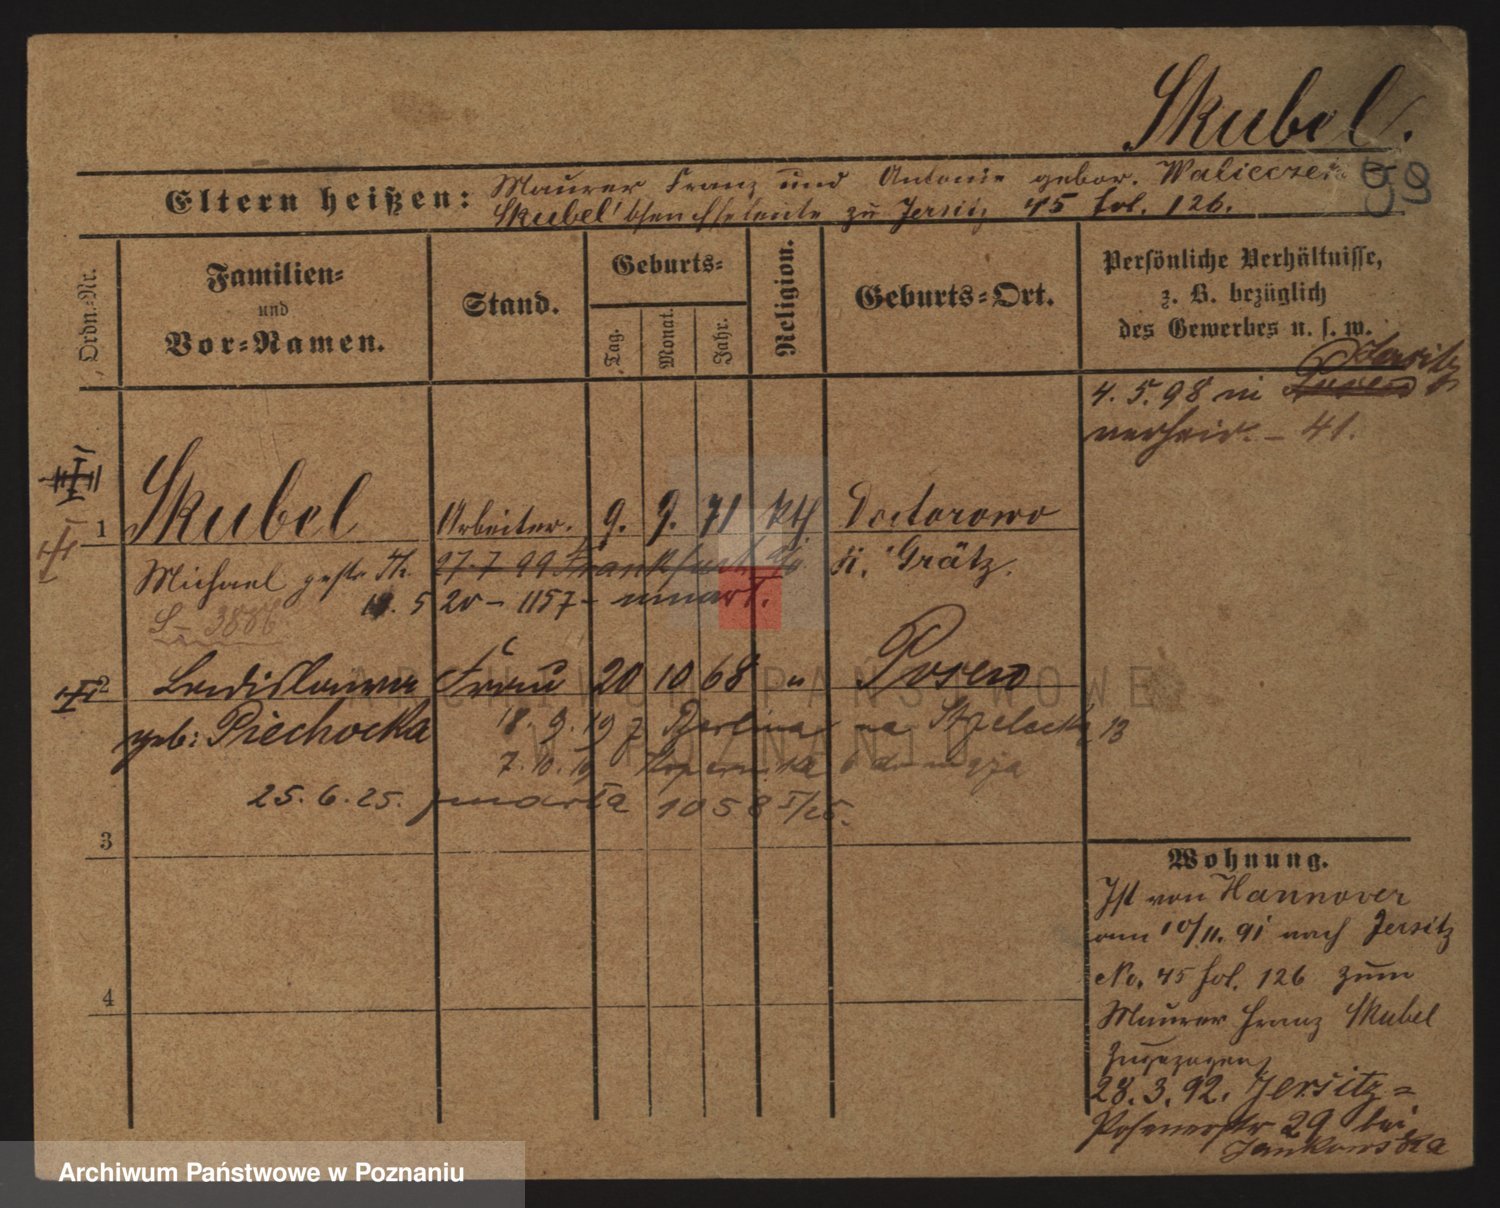 Skubel.
59
Eltern heißen: Maurer Franz und Antonie gebor.
Skubel zu Jersitz 45 fol. 126.
Ordn.-Nr.
Familien-
und
Vor-Namen.
Stand.
Geburts-
Tag.
Monat.
Jahr.
Religion.
Geburts-Ort.
Persönliche Verhältnisse,
z. B. bezüglich
des Gewerbes u. s. w.
Jersitz
4. 5. 98 in Posen
verheir. – 41.
1 Skubel Arbeiter. 9. 9. 71 kth Doctorowo
Michael 27.7 99 Frankfurt K. Grätz.
5 20 – 1157 – umart.
S – 3886
2 Ladislawa Frau 20 10 68 " Posen
geb: Piechocka 18. 9. 19 z Berlina na Strzelecka 13
7. 10. 19
25. 6. 25. zmarła 1058 I/25.
3
4
Wohnung.
Ist von Hannover
am 10/11. 91 nach Jersitz
No. 45 fol. 126 zum
Maurer Franz Skubel
zugezogen
28. 3. 92. Jersitz =
Posenerstr 29 bei
Jankowska
ARCHIWUM PAŃSTWOWE
W POZNANIU
Archiwum Państwowe w Poznaniu